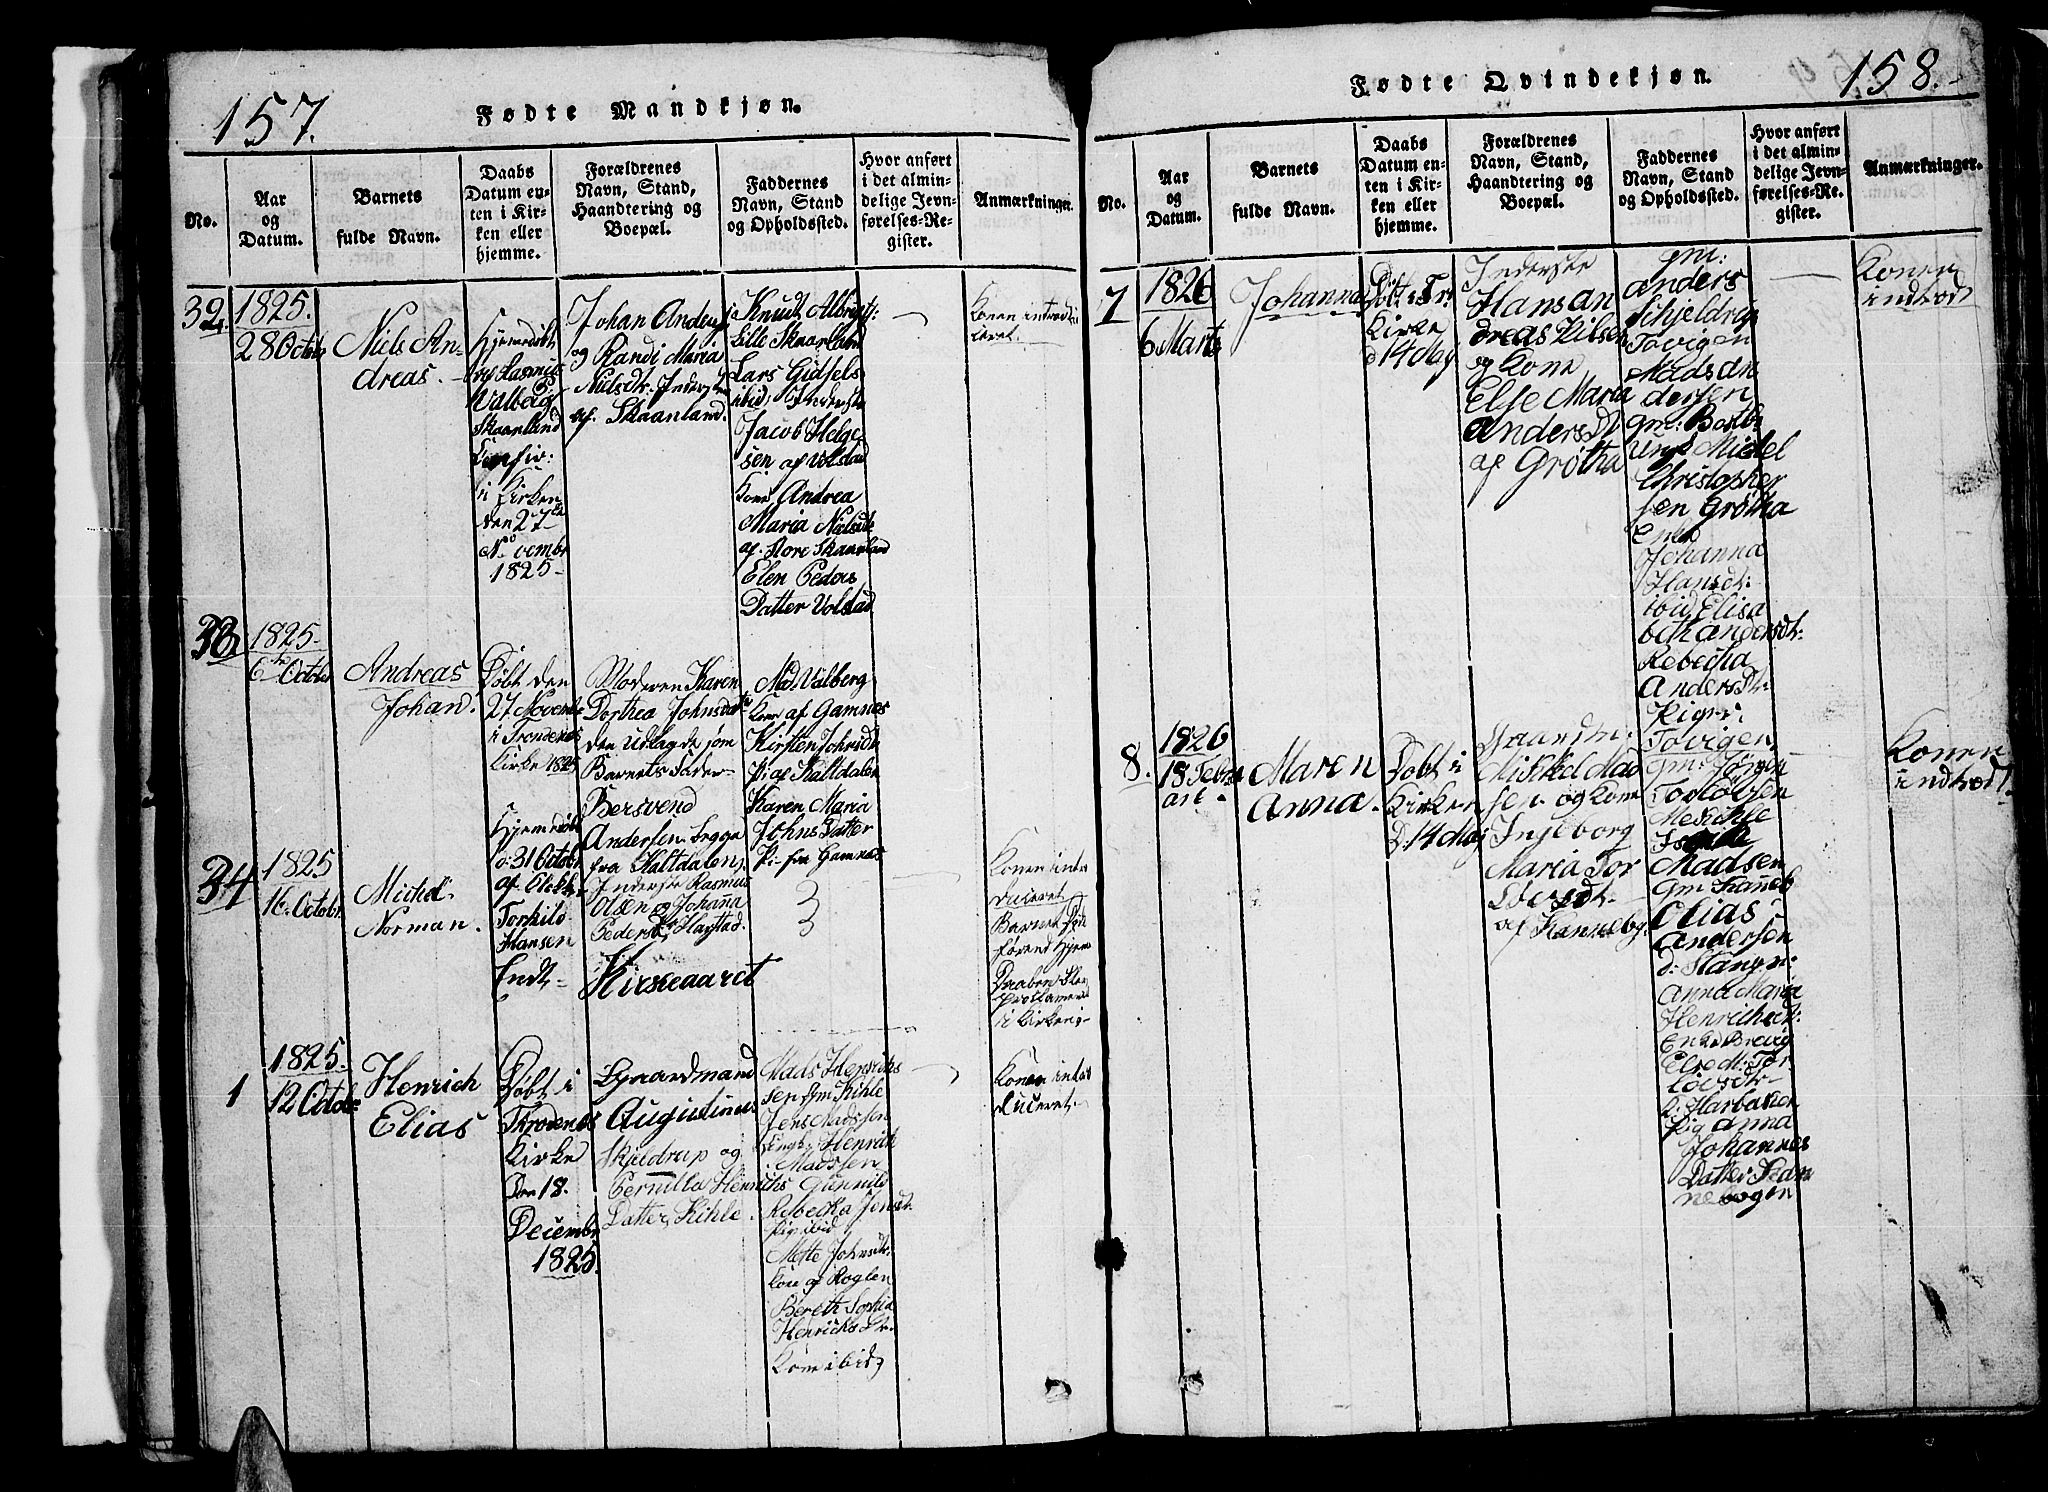 157.
Fødte Mandkjøn.
No.
Aar
og
Datum.
Barnets
fulde Navn.
Daabs
Datum en-
ten i Kir-
ken eller
hjemme.
Forældrenes
Navn, Stand,
Haandtering og
Boepæl.
Faddernes
Navn, Stand
og Opholdssted.
Hvor anført
i det almin-
delige Jevn-
førelses-Re-
gister.
Anmærkninger.
32.
1825.
28 Octobr
Niels An-
dreas.
Hjemedøbt
af Rasmus
Valberg
Skaanland
Confir:
i Kirken
den 27
Novembr
1825-
Johan Anders
og Randi Maria
Nielsdtr. Inderste
af Skaanland.
Knudt Albrigts:
Lille Skaanland
Lars Gidsels
ibid, Inderste
Jacob Helge
sen af Volstad
Kone Andrea
Maria Nielsdtr
af Store Skaanland
Elen Peders
Datter Volstad
Konen introdu
ceret.
33
1825-
6te Octobr
Andreas
Johan.
Døbt den
27 Novembr
i Trondenes
Kirke 1825
Moderen Karen
Dorthea Johnsdatter
den Udlagde som
Barnets Fader-
Bersvend
Andersen Legge
fra Kaltdalen.
Mad. Valberg
Kone af Gamnes
Kirsten Johnsdtr
Pi. af Kaltdalen
Karen Maria
Johns Datter
Pi- fra Gamnes
34
1825
16. Octobr.
Michel
Norman.
Hjemedøbt
d. 31 Octobr
af Klokker
Torkild
Hansen
Endt-
Inderste Rasmus
Olsen og Johanna
Pedersdtr Hagstad.
Kirkegaaret
Konen intro
duceret
Barnet
Hjeme
Daaben
i Kirken
1
1825.
12 Octobr
Henrich
Elias
Døbt i
Throdenes
Kirke
Den 18.
Decembr
1825.
Gaardmand
Augustinus
Skjeldrup og
Pernilla Henrichs
Datter, Kihle.
Mads Henrichs
sen Gm Kihle
Jens Madssen
Ungk. Henrik
Madssen
Gunnild
Rebecka Jensdt.
Pig ibid
Mette Johnsdtr
Kone af Roglen
Bereth Sophia
Henrichs Dtr.
Kone ibid,
Konen intro
duceret
158.-
Fødte Qvindekjøn.
No.
Aar
og
Datum.
Barnets
fulde Navn.
Daabs
Datum en-
ten i Kir-
ken eller
hjemme.
Forældrenes
Navn, Stand,
Haandtering og
Boepæl.
Faddernes
Navn, Stand
og Opholdssted.
Hvor anført
i det almin-
delige Jevn-
førelses-Re-
gister.
Anmærkninger.
7
1826
6 Marts
Johanna
Døbt i Tr:
Kirke
d 14 Maj
Inderste
Hans An
dreas Nilsen
og Kone
Else Maria
Andersdt
af Grøtha
gm:
Anders
Schjeldrup
Tovigen
Mads An
dersen
gm:
Ungk Michel
Christopher
sen Grøtha
Enke
Johanna
Hansdt:
ibid, Elisa
beth Andersdt:
Rebecha
Andersdt:
Piger:
Tovigen,
Konen
indled
8.
1826
18 Febru
ari -
Maren
Anna.
Døbt i
Kirken
D. 14 Maj
Gaardm:
Mickkel Mad
sen og Kone
Ingeborg
Maria Tor
af Kannebg.
Gm: Jørgen
Torlofsen
Madsen
Gm Kanneb
Elias
Andersen
d: Stangn:
Anna Maria
Henrichsdt:
Else M: Tor
lovsdt
Pig Anna
Johannes
Datter Kan
nebogen
Konen
indledt.